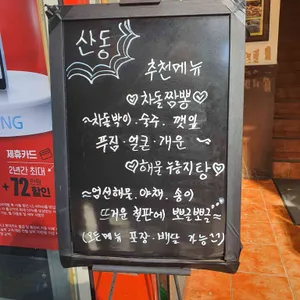 산동
추천메뉴
♡차돌짬뽕♡
~차돌박이·숙주·깻잎
푸짐·얼큰·개운~
♡해물누룽지탕♡
~엄선해물·야채·송이
뜨거운 철판에 뽀글뽀글~
(모든메뉴 포장·배달 가능)
NG
제휴카드
2년간 최대
+12 할인